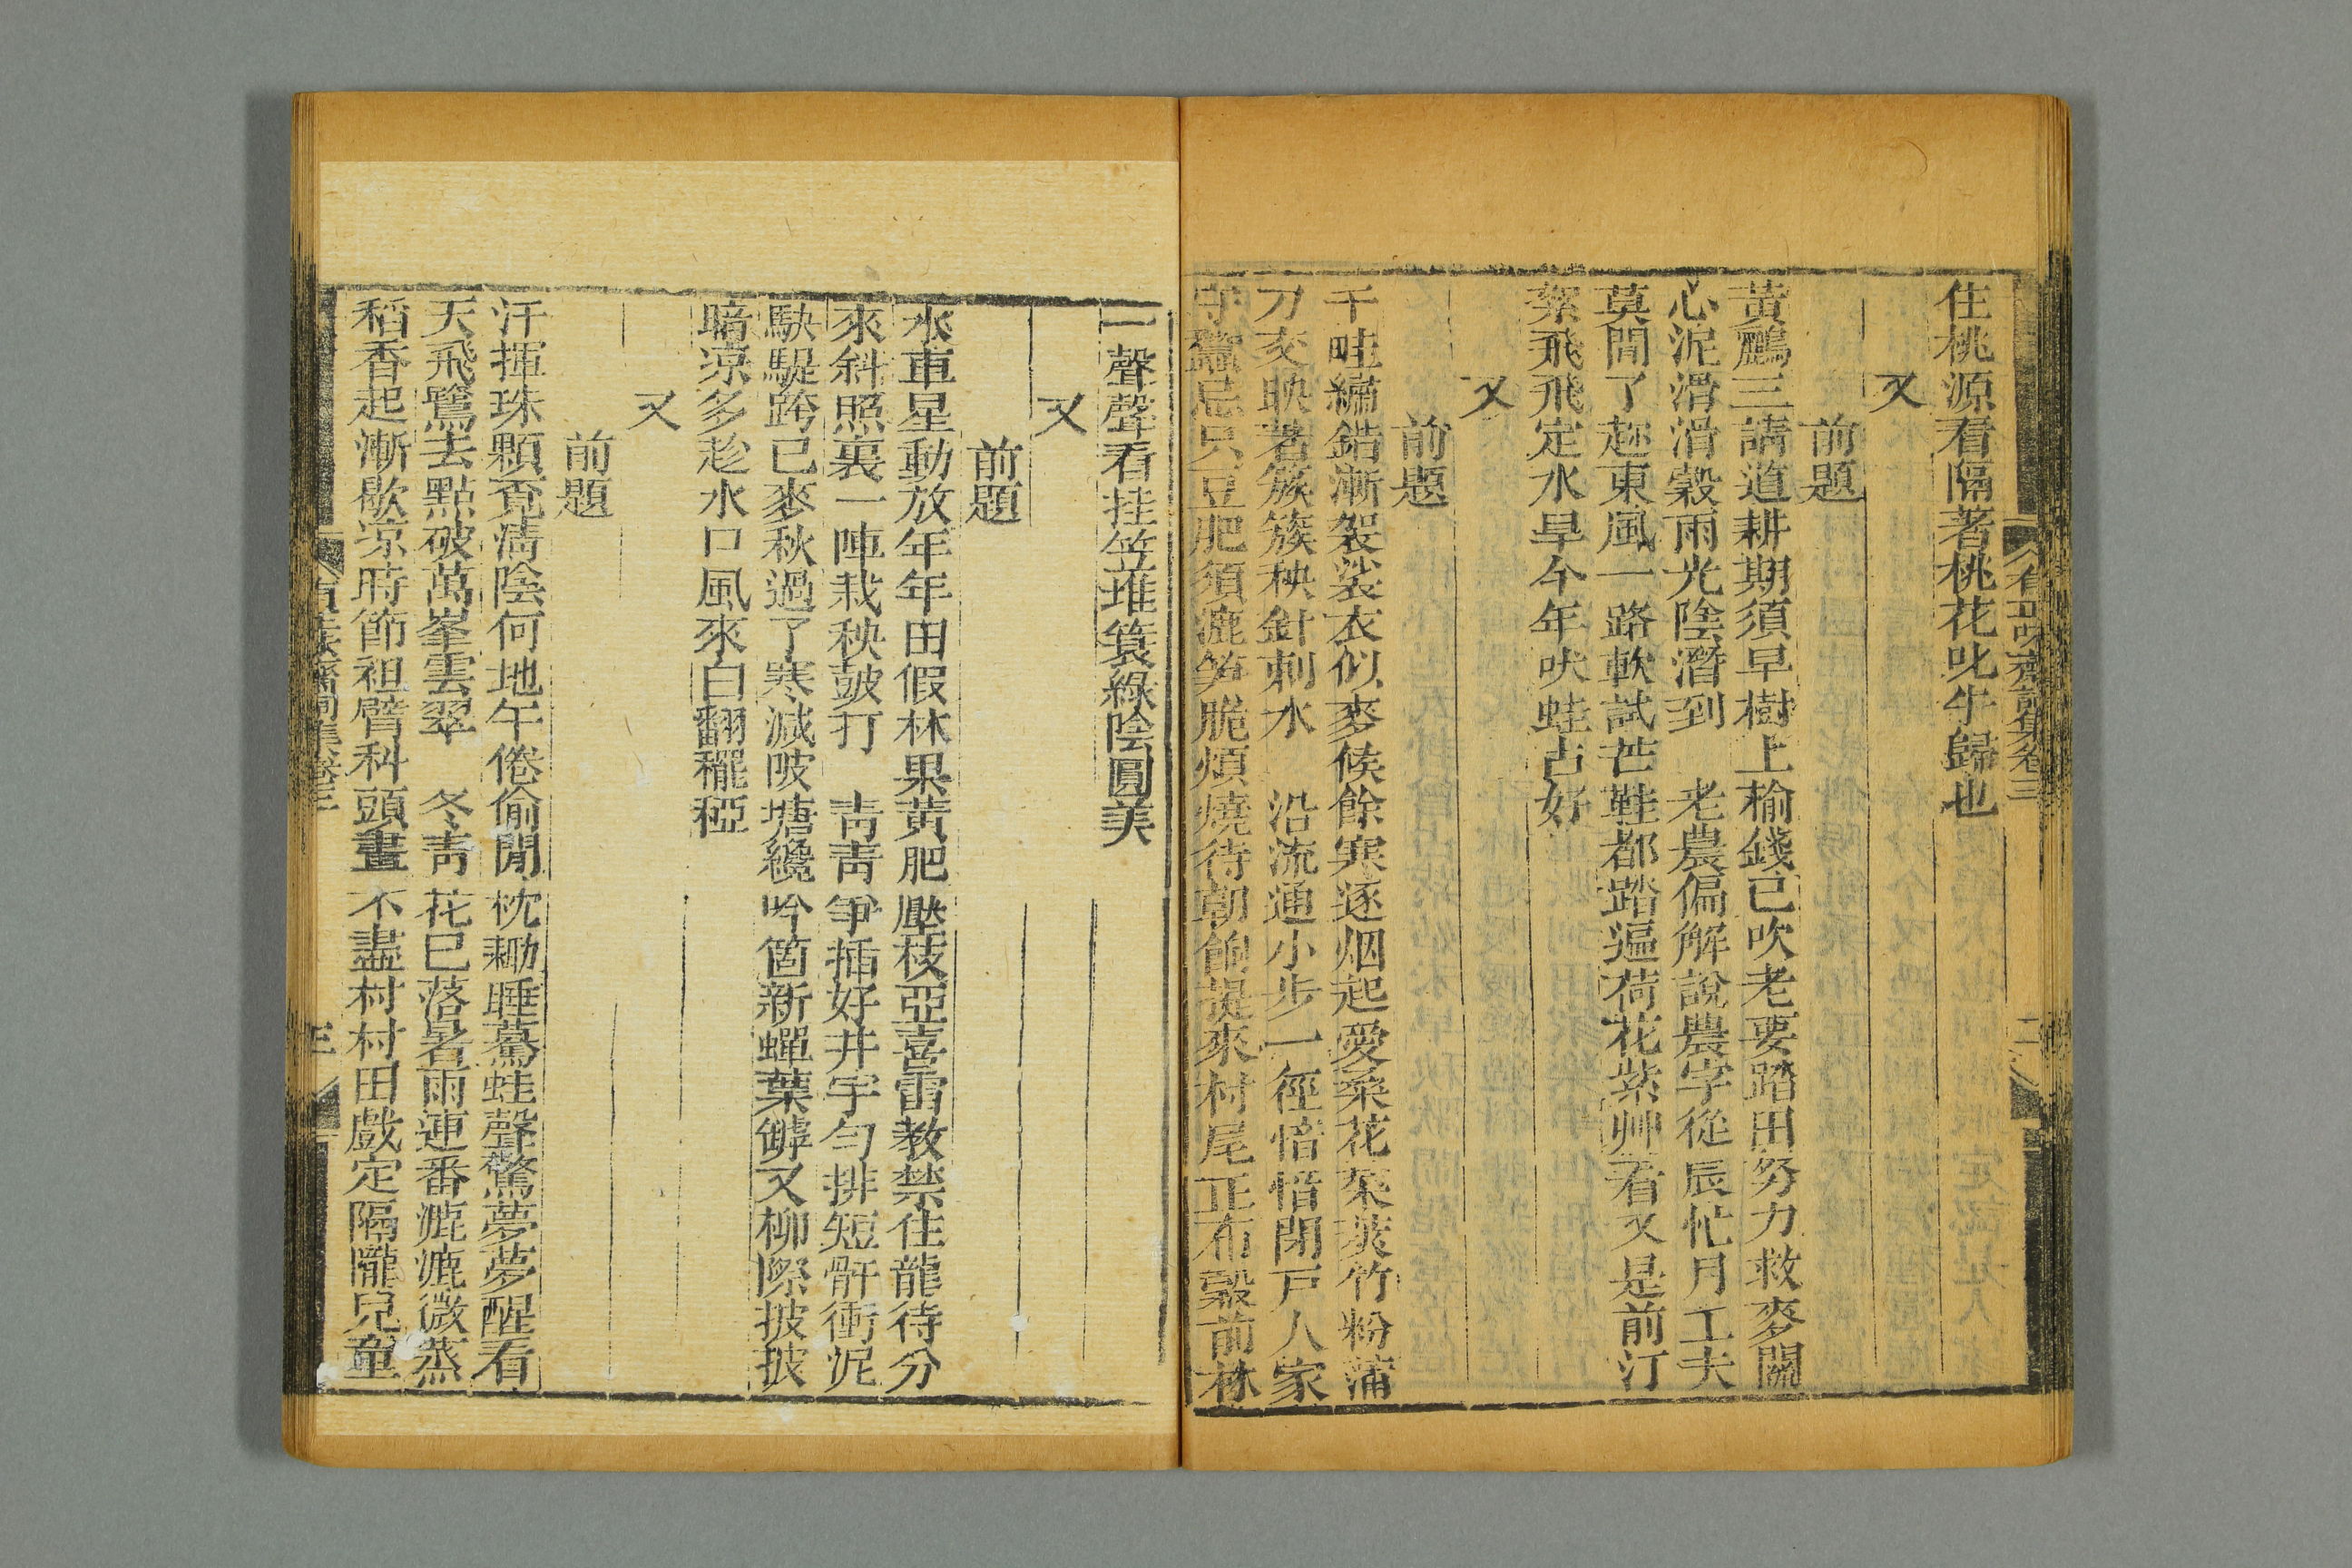 住桃源看隔著桃花叱牛歸也
又
前題
黃鸝三請道耕期須早樹上榆錢已吹老要踏田努力救麥關
心泥滑滑穀雨光陰潛到　老農偏解說農字從辰忙月工夫
莫閒了趂東風一路軟試芒鞋都踏遍荷花紫艸看又是前汀
絮飛飛定水旱今年吠蛙占好
又
前題
千畦繡錯漸袈裟衣似麥候餘寒逐烟起愛桑花茱莢竹粉蒲
刀交映著簇簇秧針刺水　沿流通小步一徑愔愔閉戸人家
守蠶忌只豆肥須漉笋脆煩燒待朝餉提來村尾正布穀前林
一聲聲看挂笠堆簑綠陰圓美
又
前題
水車星動放年年田假林果黃肥壓枝亞喜雷教禁住龍待分
來斜照裏一陣栽秧皷打　靑靑爭插好井字勻排短骭衝泥
駃騠跨已麥秋過了寒減陂塘纔吟箇新蟬葉罅又柳際披披
暗凉多趁水口風來白翻䆉稏
又
前題
汗揮珠顆覓淸陰何地午倦偷閒枕耡睡驀蛙聲驚夢夢醒看
天飛鷺去點破萬峯雲翠　冬靑花已落暑雨連番漉漉微蒸
稻香起漸歇凉時節袒臂科頭畫不盡村村田戲定隔隴兒童
二
三